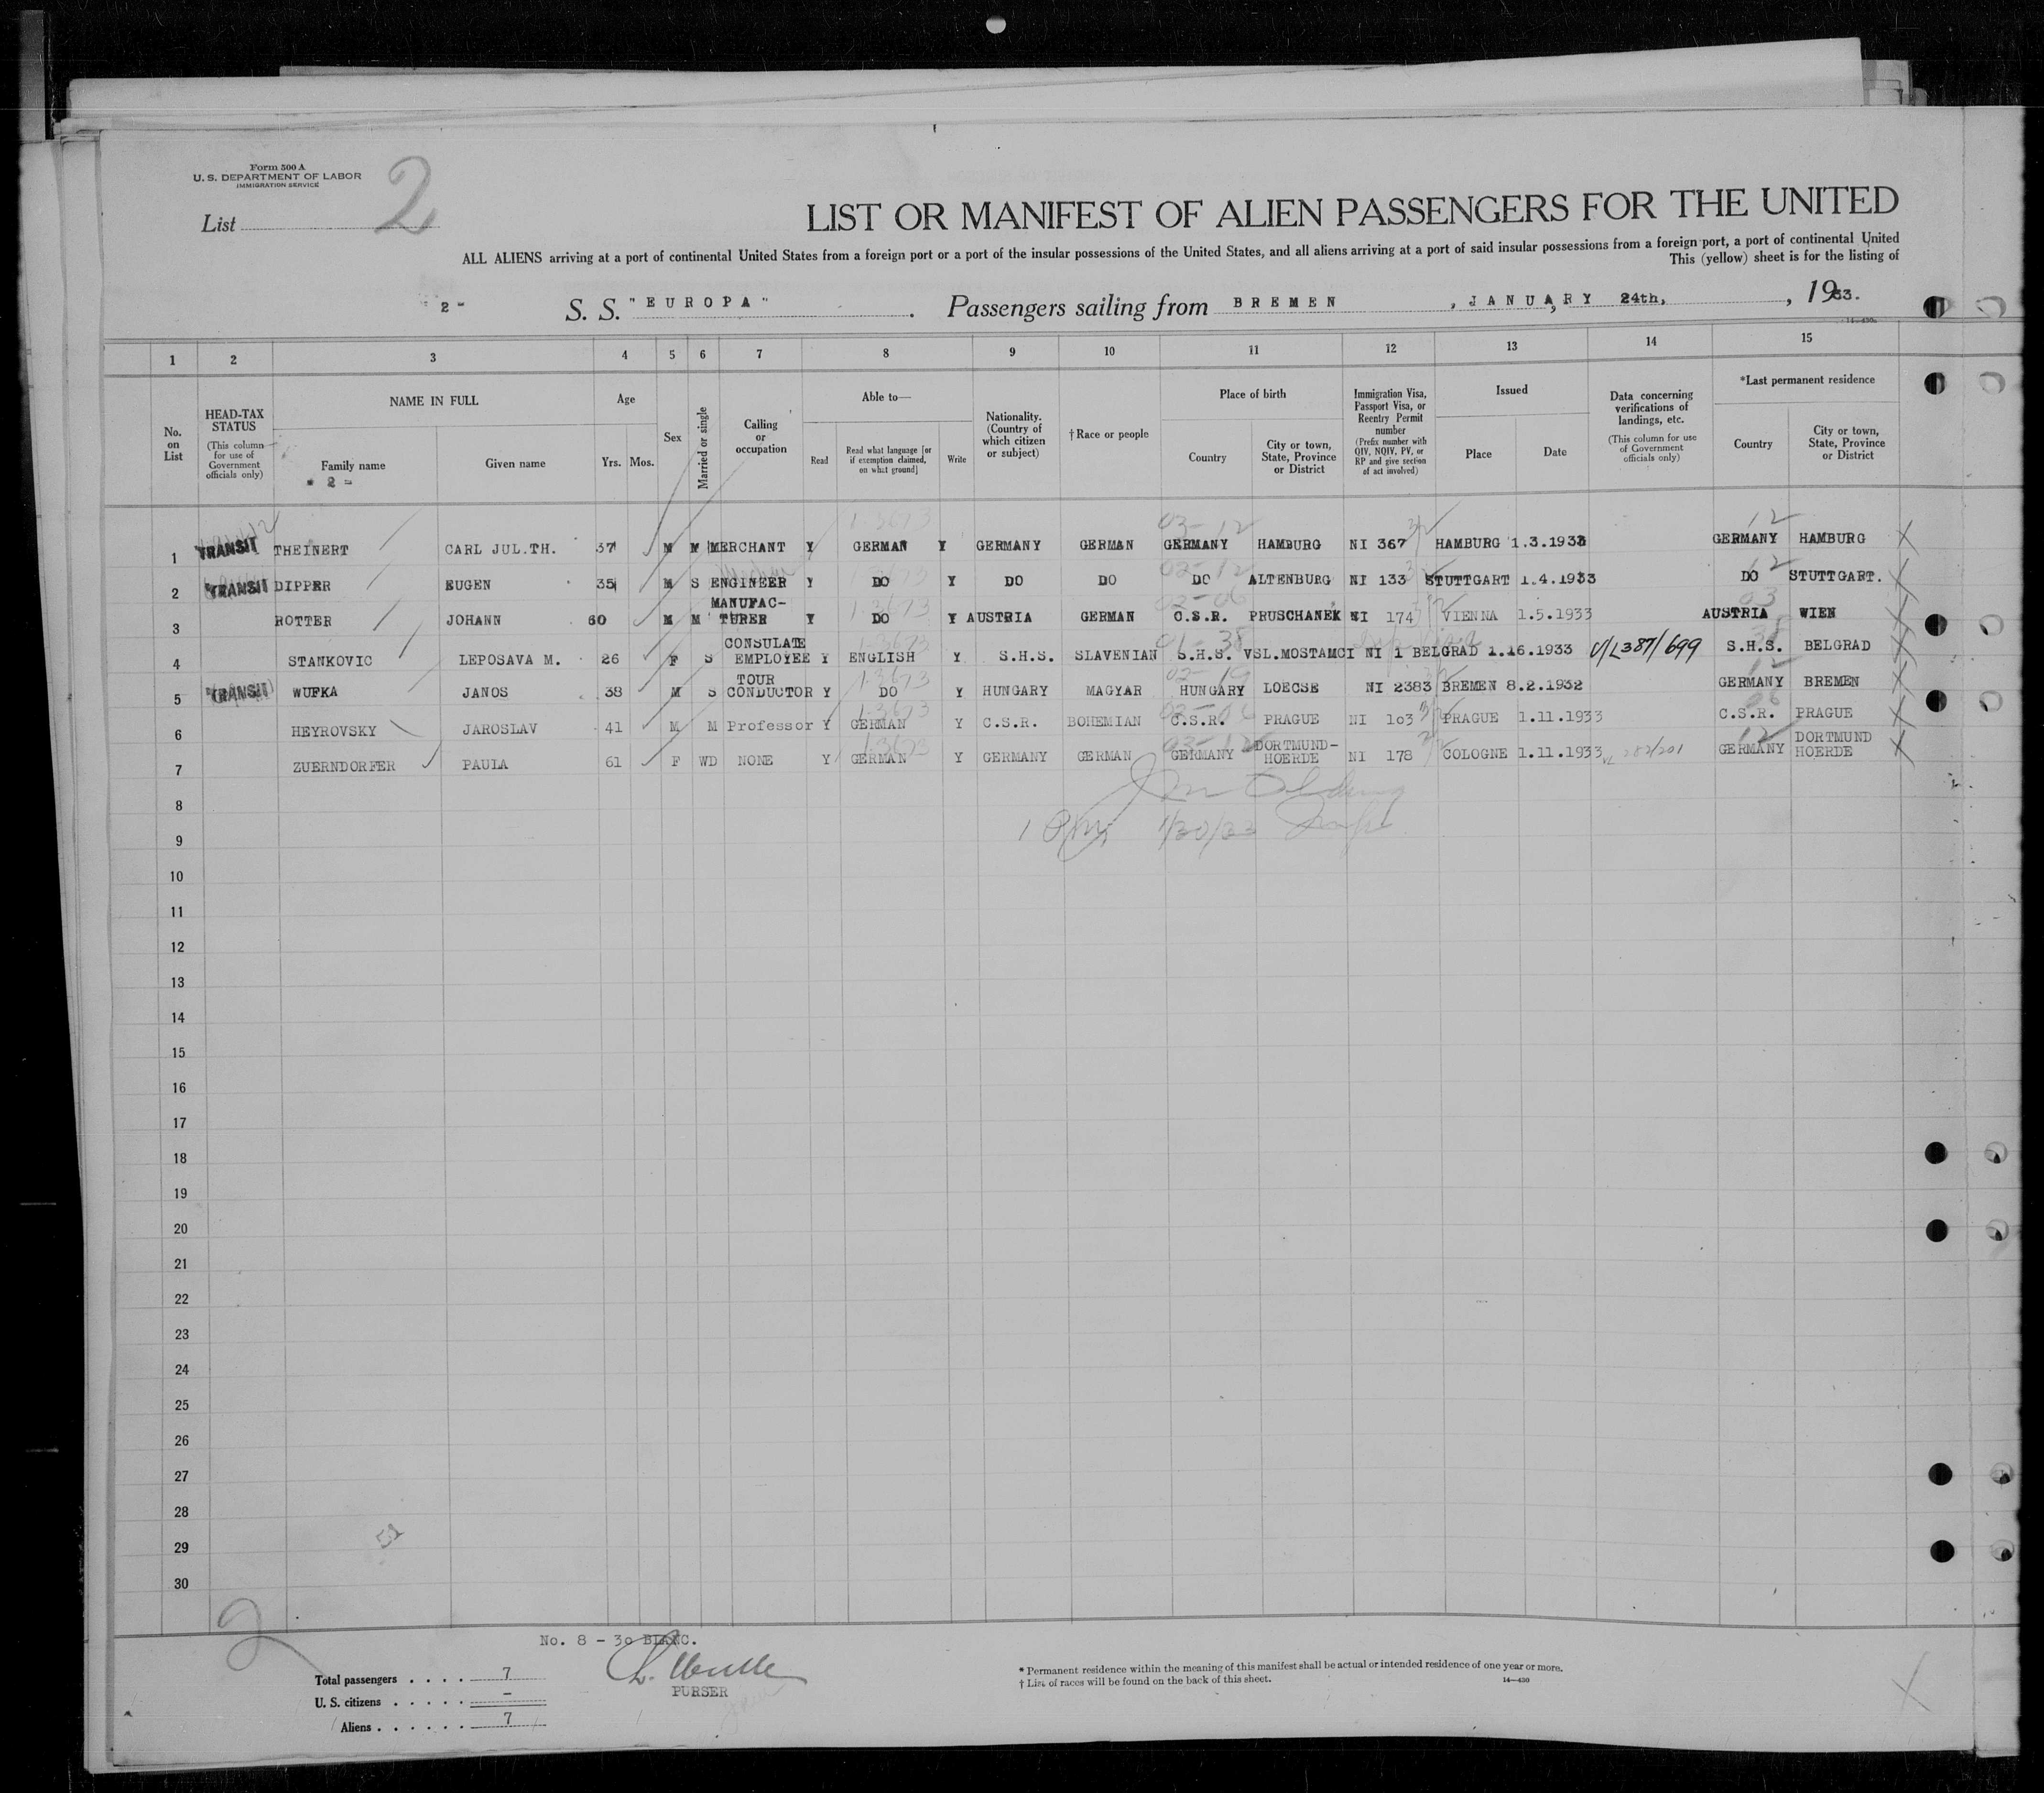 Form 500 A
U. S. DEPARTMENT OF LABOR
IMMIGRATION SERVICE
List 2
LIST OR MANIFEST OF ALIEN PASSENGERS FOR THE UNITED
ALL ALIENS arriving at a port of continental United States from a foreign port or a port of the insular possessions of the United States, and all aliens arriving at a port of said insular possessions from a foreign port, a port of continental United
This (yellow) sheet is for the listing of
- 2 - S. S. "EUROPA" . Passengers sailing from BREMEN , JANUARY 24th, , 1933.
14—430
1 2 3 4 5 6 7 8 9 10 11 12 13 14 15
No. on List
HEAD-TAX STATUS (This column for use of Government officials only)
NAME IN FULL
Family name Given name
- 2 -
Age
Yrs. Mos.
Sex
Married or single
Calling or occupation
Able to—
Read Read what language [or if exemption claimed, on what ground] Write
Nationality. (Country of which citizen or subject)
† Race or people
Place of birth
Country City or town, State, Province or District
Immigration Visa, Passport Visa, or Reentry Permit number (Prefix number with QIV, NQIV, PV, or RP and give section of act involved)
Issued
Place Date
Data concerning verifications of landings, etc. (This column for use of Government officials only)
*Last permanent residence
Country City or town, State, Province or District
1 TRANSIT THEINERT CARL JUL.TH. 37 M M MERCHANT Y GERMAN Y GERMANY GERMAN GERMANY HAMBURG NI 367 HAMBURG 1.3.1933 GERMANY HAMBURG
2 TRANSIT DIPPER EUGEN 35 M S ENGINEER Y DO Y DO DO DO ALTENBURG NI 133 STUTTGART 1.4.1933 DO STUTTGART.
3 ROTTER JOHANN 60 M M MANUFAC-TURER Y DO Y AUSTRIA GERMAN C.S.R. PRUSCHANEK NI 174 VIENNA 1.5.1933 AUSTRIA WIEN
4 STANKOVIC LEPOSAVA M. 26 F S CONSULATE EMPLOYEE Y ENGLISH Y S.H.S. SLAVENIAN S.H.S. VSL.MOSTAMCI NI 1 BELGRAD 1.16.1933 V/L387/699 S.H.S. BELGRAD
5 TRANSIT WUFKA JANOS 38 M S TOUR CONDUCTOR Y DO Y HUNGARY MAGYAR HUNGARY LOECSE NI 2383 BREMEN 8.2.1932 GERMANY BREMEN
6 HEYROVSKY JAROSLAV 41 M M Professor Y GERMAN Y C.S.R. BOHEMIAN C.S.R. PRAGUE NI 103 PRAGUE 1.11.1933 C.S.R. PRAGUE
7 ZUERNDORFER PAULA 61 F WD NONE Y GERMAN Y GERMANY GERMAN GERMANY DORTMUND-HOERDE NI 178 COLOGNE 1.11.1933 VL 282/201 GERMANY DORTMUND HOERDE
8
9 1/30/33
10
11
12
13
14
15
16
17
18
19
20
21
22
23
24
25
26
27
28
29
30
2
No. 8 - 30 BLANC.
PURSER
Total passengers . . . . 7
U. S. citizens . . . . . –
Aliens . . . . . . 7
* Permanent residence within the meaning of this manifest shall be actual or intended residence of one year or more.
† List of races will be found on the back of this sheet.
14—430